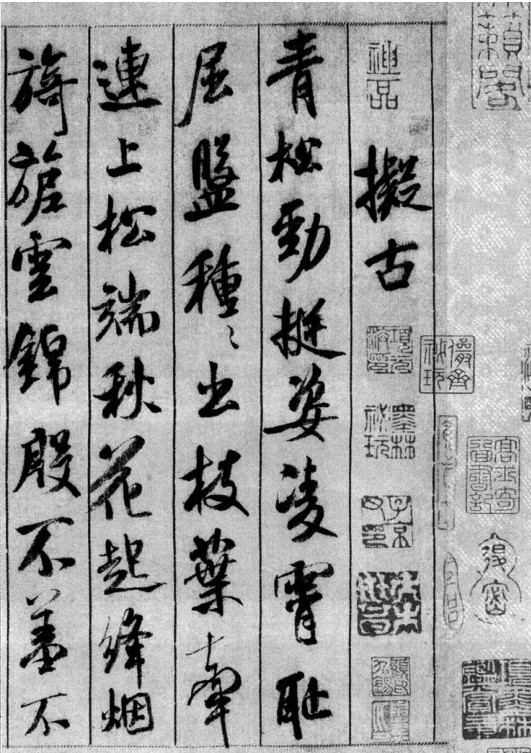 神品
擬古
墨林祕玩
青松勁挺姿凌霄耻
屈盤種〻出枝葉牽
連上松端秋花起絳烟
旖旎雲錦殷不羞不